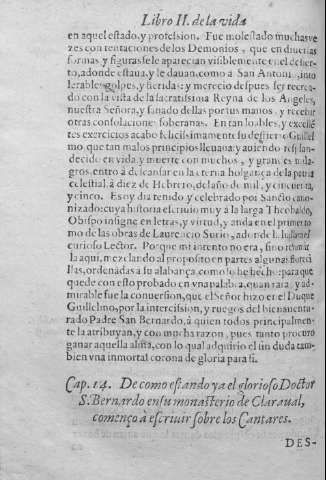 Libro II. de la vida
en aquel estado, y profession. Fue molestado muchas ve
zes con tentaciones de los Demonios, que en diuersas
formas y figuras se le aparecian visiblemente en el desier
to, adonde estaua, y le dauan, como a San Antonio, into
lerables golpes, y heridas: y merecio despues ser recrea
do con la vista de la sacratissima Reyna de los Angeles,
nuestra Señora, y sanado de llas por sus manos, y recebir
otras consolaciones soberanas. En tan lobles, y excellẽ
tes exercicios acabo felicissimamente su destierro Guillel
mo, que tan malos principios lleuaua; y auiendo resplan
decido en vida, y muerte con muchos, y grandes mila-
gros, entrò à descansar en la eterna holgança de la patria
celestial, à diez de Hebrero, del año de mil, y cincuenta,
y cinco. Es oy dia tenido, y celebrado por Sancto cano
nizado: cuya historia escriuio muy à la larga Theobaldo,
Obispo insigne en letras, y virtud, y anda en el primer to
mo de las obras de Laurencio Surio, adonde la hallara el
curioso Lector. Porque mi intento no era, sino
la aqui, mezclando al proposito en partes algunas
llas, ordenadas à su alabança, como lo he hecho: para que
quede con esto probado en vna palabra, quan rara, y ad-
mirable fue la conuersion, que el Señor hizo en el Duque
Guillelmo, por la intercession, y ruegos del bienauentu-
rado Padre San Bernardo, à quien todos principalmen-
te la atribuyan, y con mucha razon, pues tanto procurò
ganar aquella alma, con lo qual adquirio el sin duda tam
bien vna inmortal corona de gloria para si.
Cap. 14. De como estando ya el glorioso Doctor
S. Bernardo en su monasterio de Claraual,
començo à escriuir sobre los Cantares.
DES-